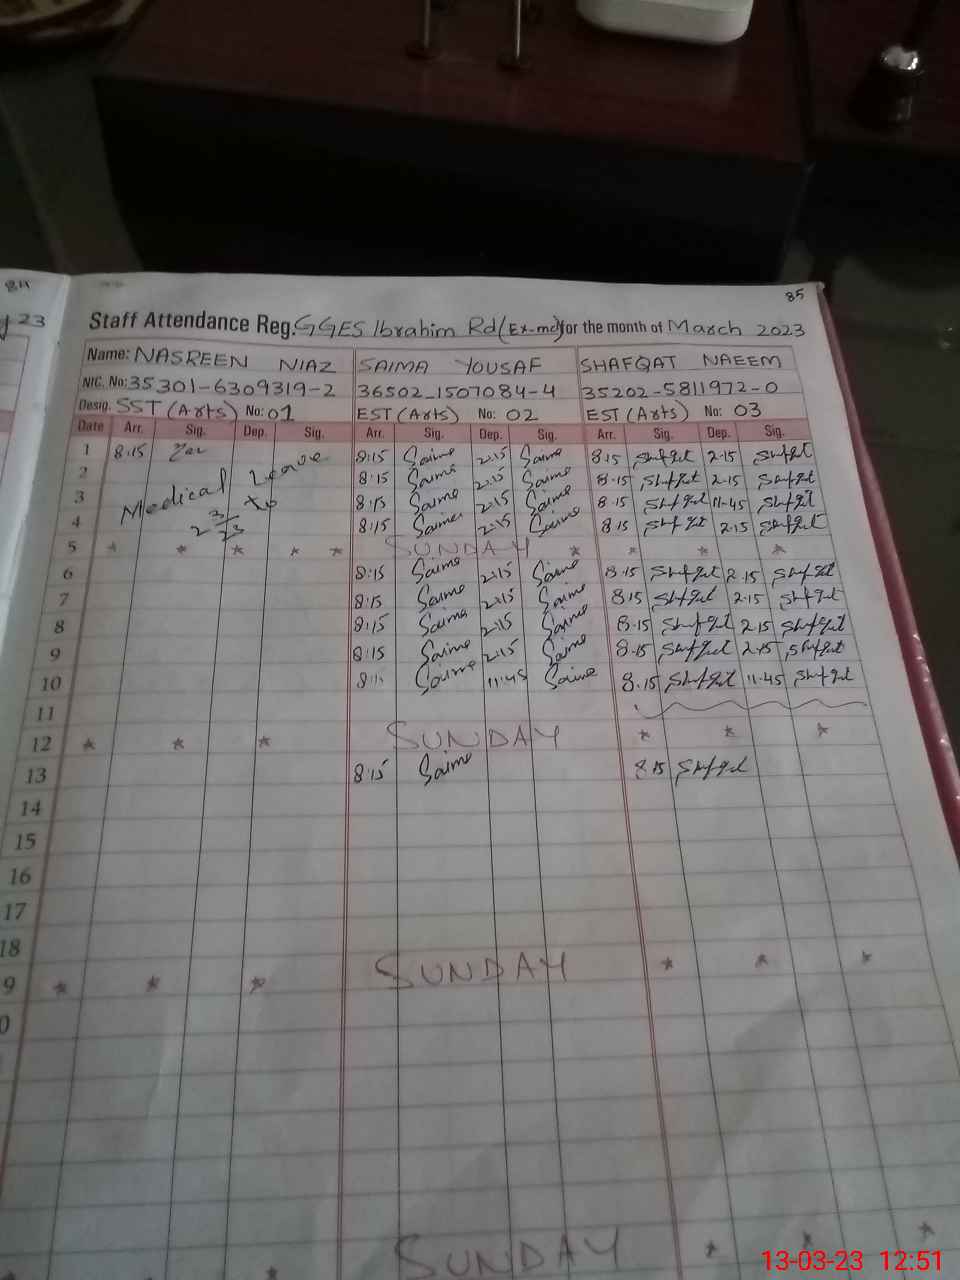 84
85
23
Staff Attendance Reg. GGES Ibrahim Rd (Ex-mc) for the month of March 2023
Name: NASREEN NIAZ SAIMA YOUSAF SHAFQAT NAEEM
NIC. No: 35301-6309319-2 36502-1507084-4 35202-5811972-0
Desig. SST (Arts) No: 01 EST (Arts) No: 02 EST (Arts) No: 03
Date Arr. Sig. Dep. Sig. Arr. Sig. Dep. Sig. Arr. Sig. Dep. Sig.
1 8:15 8:15 Saima 2:15 Saima 8.15 Shafqat 2.15 Shafqat
2 Medical Leave 8:15 Saima 2:15 Saima 8.15 Shafqat 2.15 Shafqat
3 2 3/23 to 8:15 Saima 2:15 Saima 8.15 Shafqat 11.45 Shafqat
4 8:15 Saima 2:15 Saima 8.15 Shafqat 2.15 Shafqat
5 * * * * * SUNDAY * * * *
6 8:15 Saima 2:15 Saima 8.15 Shafqat 2.15 Shafqat
7 8:15 Saima 2:15 Saima 8.15 Shafqat 2.15 Shafqat
8 8:15 Saima 2:15 Saima 8.15 Shafqat 2.15 Shafqat
9 8:15 Saima 2:15 Saima 8.15 Shafqat 2.15 Shafqat
10 8:15 Saima 11:45 Saima 8.15 Shafqat 11.45 Shafqat
11
12 * * * SUNDAY * * *
13 8:15 Saima 8.15 Shafqat
14
15
16
17
18
9 * * * SUNDAY * * *
0
* * SUNDAY * * *
13-03-23 12:51